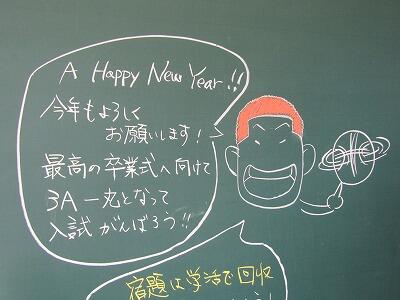 A Happy New Year!!
今年もよろしく
お願いします!
最高の卒業式へ向けて
3A 一丸となって
入試がんばろう!!
宿題は学活で回収